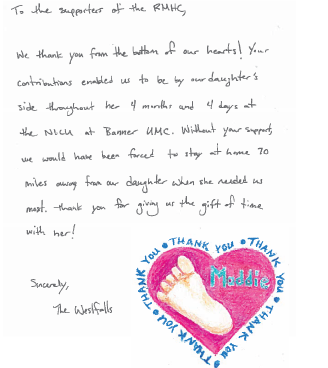 To the supporters of the RMHC,
We thank you from the bottom of our hearts! Your
contributions enabled us to be by our daughter's
side throughout her 4 months and 4 days at
the NICU at Banner UMC. Without your support,
we would have been forced to stay at home 70
miles away from our daughter when she needed us
most. Thank you for giving us the gift of time
with her!
Sincerely,
The Westfalls
THANK YOU • THANK YOU • THANK YOU • THANK YOU • THANK YOU • THANK YOU • THANK YOU
Maddie